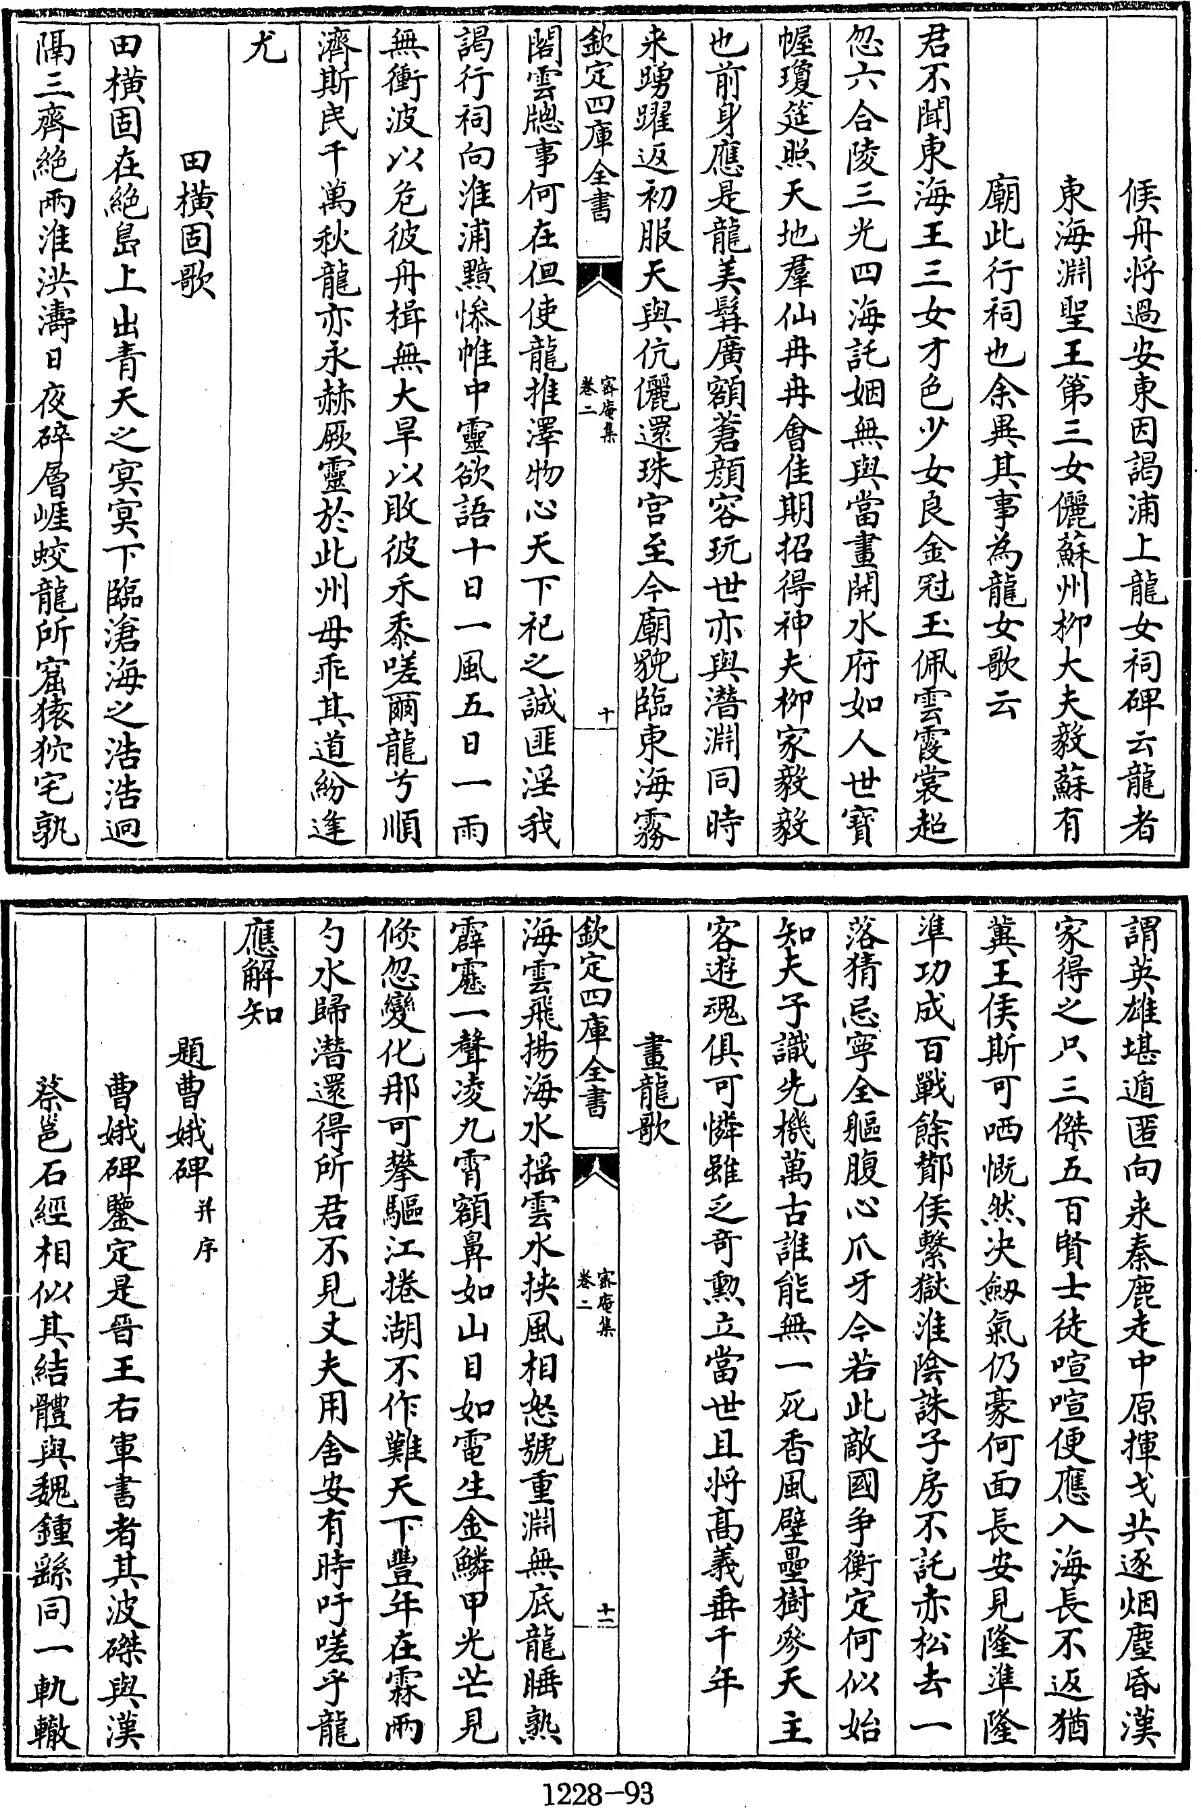 候舟將過安東因謁浦上龍女祠碑云龍者
東海淵聖王第三女儷蘇州柳大夫毅蘇有
廟此行祠也余異其事為龍女歌云
君不聞東海王三女才色少女良金冠玉佩雲霞裳超
忽六合陵三光四海託姻無與當畫開水府如人世寶
幄瓊筵照天地羣仙冉冉會佳期招得神夫柳家毅毅
也前身應是龍美髯廣額蒼顔容玩世亦與潛淵同時
来踴躍返初服天與伉儷還珠宫至今廟貌臨東海霧
欽定四庫全書
宻庵集
卷二
十
閣雲牕事何在但使龍推澤物心天下祀之誠匪淫我
謁行祠向淮浦黯惨帷中靈欲語十日一風五日一雨
無衝波以危彼舟楫無大旱以敗彼禾黍嗟爾龍兮順
濟斯民千萬秋龍亦永赫厥靈於此州毋乖其道紛逢
尤
田横固歌
田横固在絶島上出青天之冥冥下臨滄海之浩浩迥
隔三齊絶兩淮洪濤日夜碎層崕蛟龍所窟猿狖宅孰
謂英雄堪遁匿向来秦鹿走中原揮戈共逐烟塵昏漢
家得之只三傑五百賢士徒喧喧便應入海長不返猶
冀王侯斯可哂慨然决劔氣仍豪何面長安見隆準隆
準功成百戰餘酇侯繫獄淮陰誅子房不託赤松去一
落猜忌寧全軀腹心爪牙今若此敵國争衡定何似始
知夫子識先機萬古誰能無一死香風壁壘樹參天主
客遊魂俱可憐雖乏奇勲立當世且將髙義垂千年
畫龍歌
欽定四庫全書
宻庵集
卷二
十一
海雲飛揚海水摇雲水挾風相怒號重淵無底龍睡熟
霹靂一聲凌九霄額鼻如山目如電生金鱗甲光芒見
倐忽變化那可攀驅江捲湖不作難天下豐年在霖雨
勺水歸潛還得所君不見丈夫用舍安有時吁嗟乎龍
應解知
題曹娥碑并序
曹娥碑鑒定是晉王右軍書者其波磔與漢
蔡邕石經相似其結體與魏鍾繇同一軌轍
1228-93